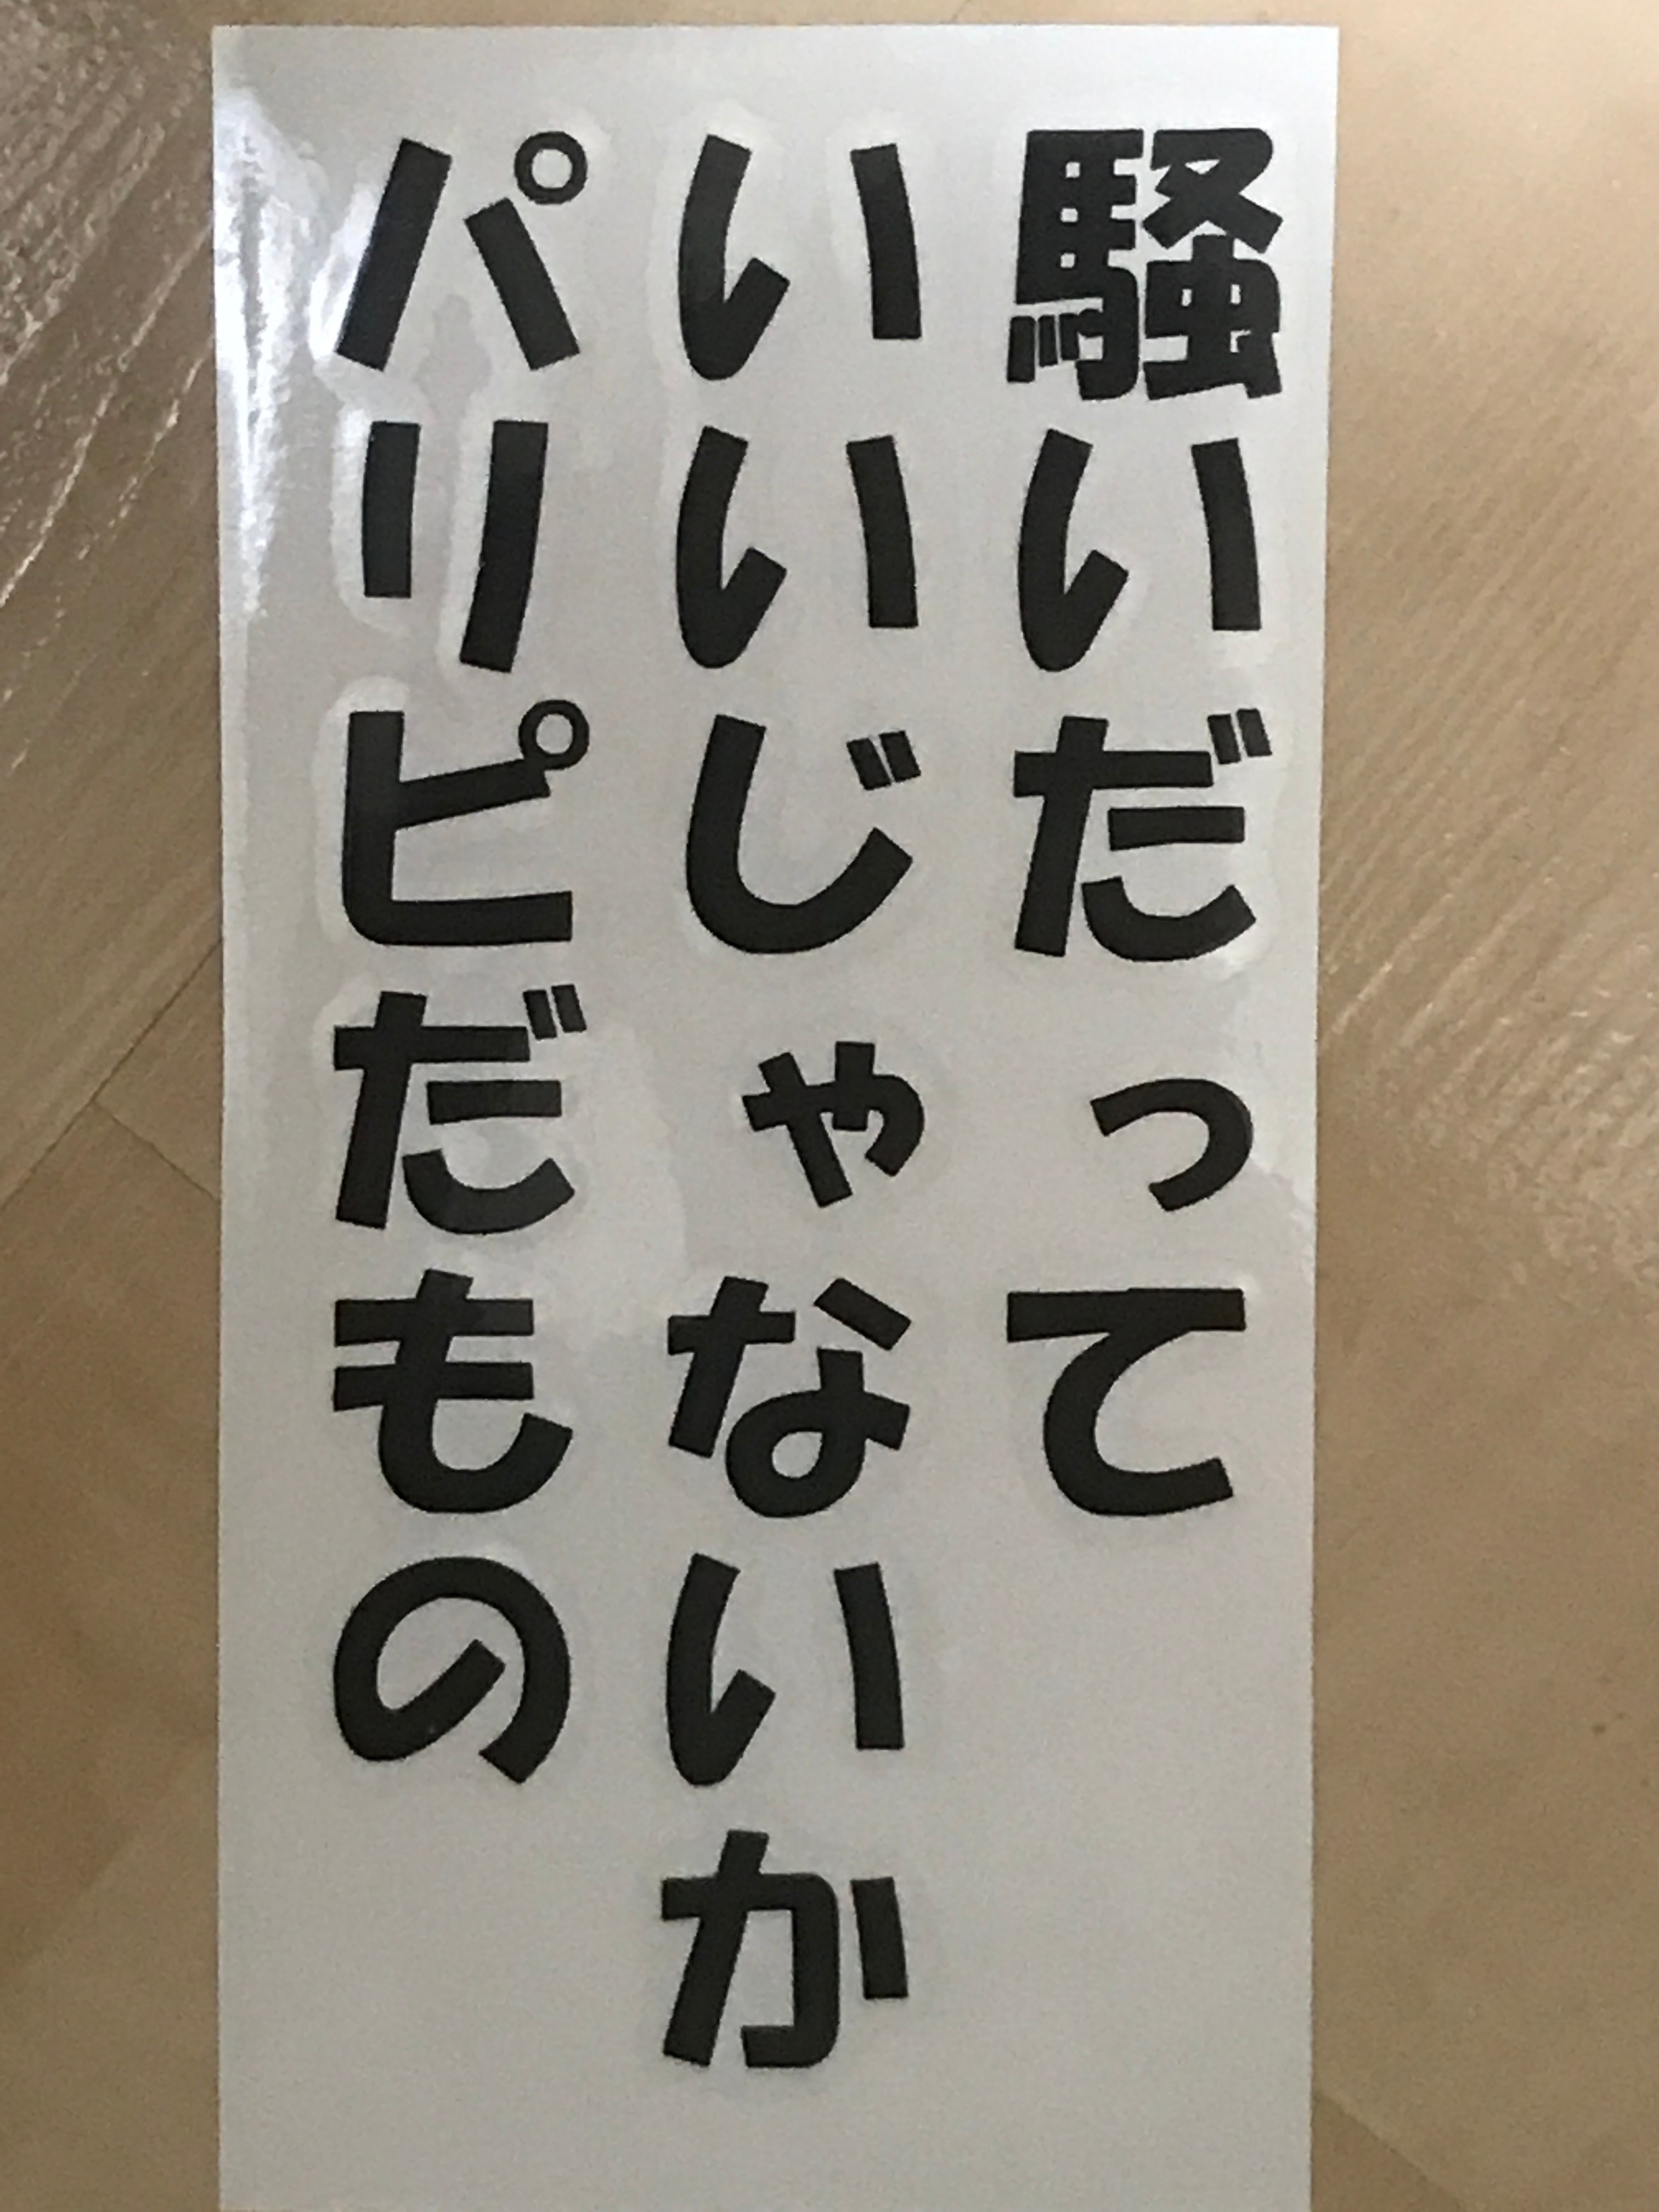 騒いだって
いいじゃないか
パリピだもの